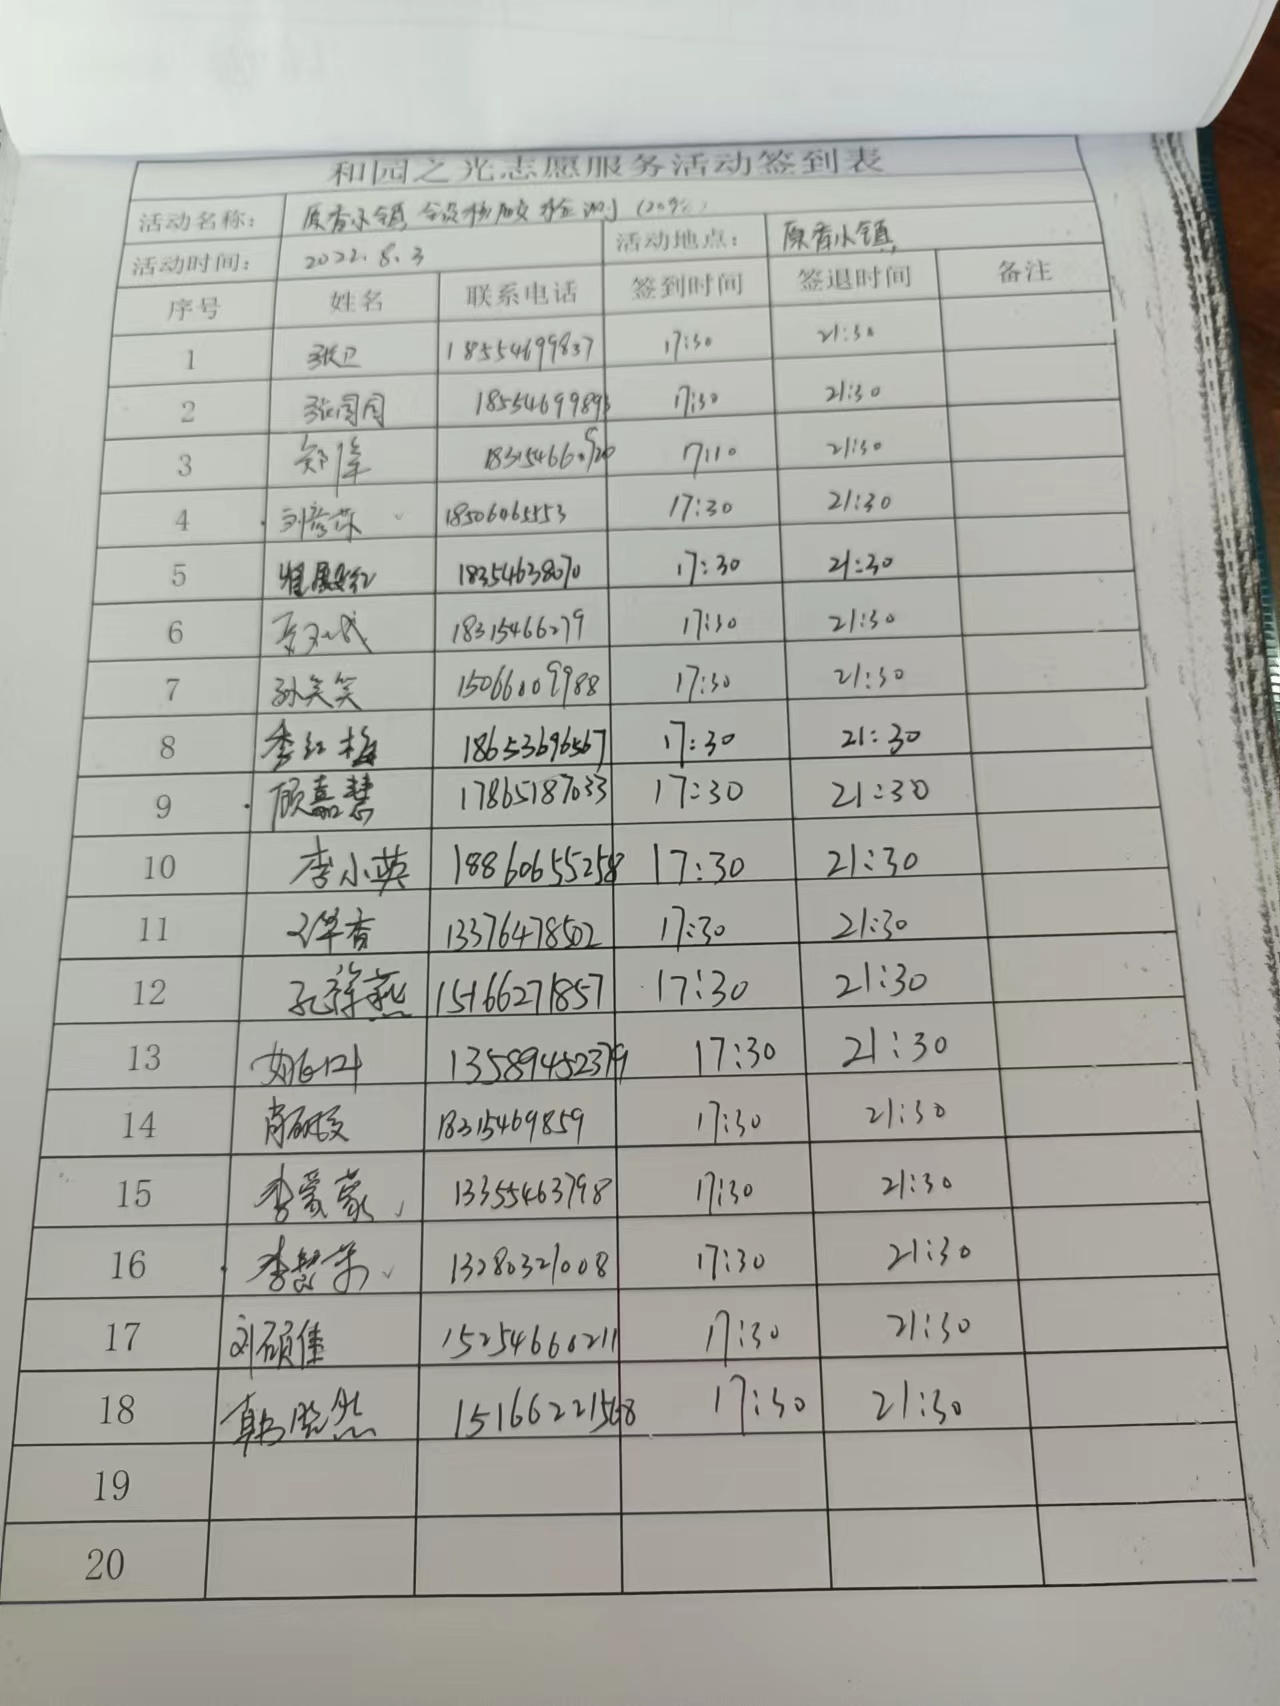 和园之光志愿服务活动签到表
活动名称: 原香小镇 全员核酸检测
活动时间: 2022.8.3 活动地点: 原香小镇
序号 姓名 联系电话 签到时间 签退时间 备注
1 张卫 18554699837 17:30 21:30
2 张闯闯 18554699893 17:30 21:30
3 21:30
4 刘彦荣 18506465553 17:30 21:30
5 18354638070 17:30 21:30
6 18315466279 17:30 21:30
7 孙笑笑 15066009988 17:30 21:30
8 季红梅 18653696567 17:30 21:30
9 顾嘉慧 17865187033 17:30 21:30
10 李小英 18860655258 17:30 21:30
11 13376478502 17:30 21:30
12 孔祥燕 15166271857 17:30 21:30
13 姚叶 13589452379 17:30 21:30
14 18315469859 17:30 21:30
15 李爱蒙 13355463798 17:30 21:30
16 13280321008 17:30 21:30
17 刘硕佳 15254666211 17:30 21:30
18 韩晓然 15166221568 17:30 21:30
19
20